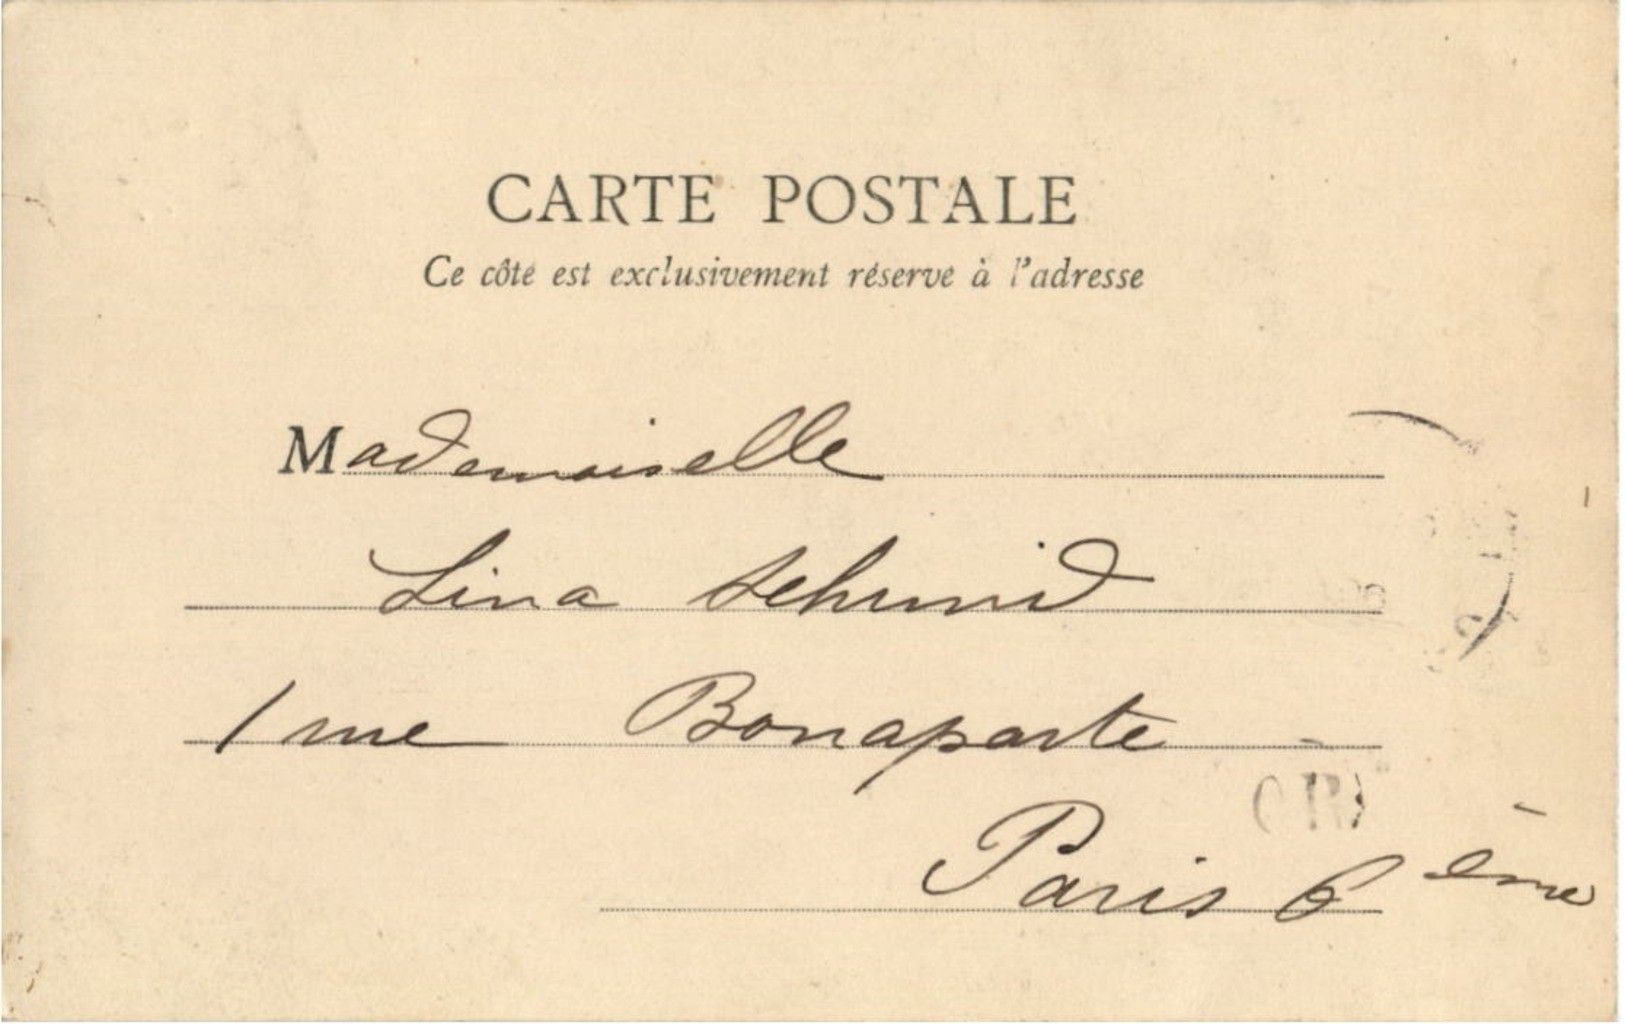 CARTE POSTALE
Ce côté est exclusivement réservé à l'adresse
Mademoiselle
Lina Schmid
1 rue Bonaparte
Paris 6ème